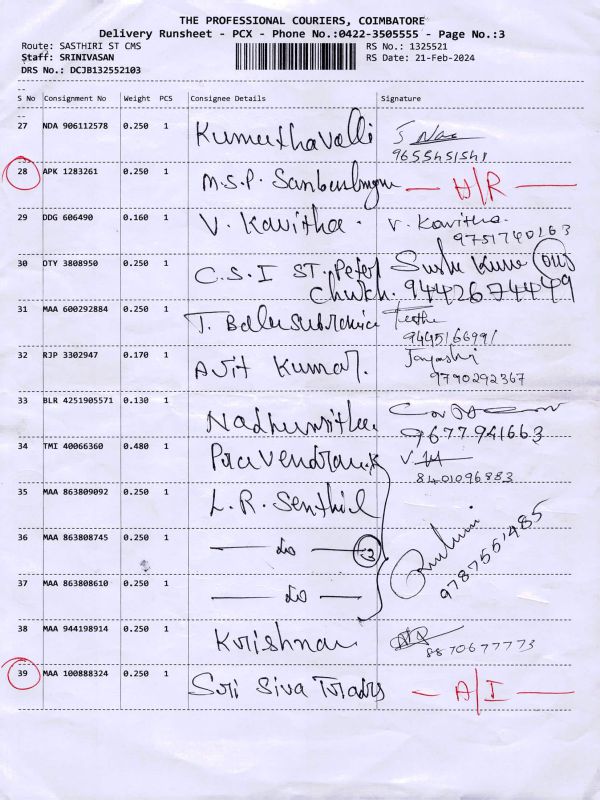 THE PROFESSIONAL COURIERS, COIMBATORE
Delivery Runsheet - PCX - Phone No.:0422-3505555 - Page No.:3
Route: SASTHIRI ST CMS RS No.: 1325521
Staff: SRINIVASAN RS Date: 21-Feb-2024
DRS No.: DCJB132552103
S No Consignment No Weight PCS Consignee Details Signature
27 NDA 906112578 0.250 1 Kumuthavalli
9655451541
28 APK 1283261 0.250 1 M.S.P. A/R
29 DDG 606490 0.160 1 V. Kavitha. V. Kavitha.
9751740163
30 DTY 3808950 0.250 1 C.S.I ST. Peter
Church. 9442674449
31 MAA 600292884 0.250 1 T. Balasubramania
9445166991
32 RJP 3302947 0.170 1 Ajit Kumar. Jayashri
9790292367
33 BLR 4251905571 0.130 1 Nadhumitha.
9677941663
34 TMI 40066360 0.480 1 Pravendran.K
8401096883
35 MAA 863809092 0.250 1 L.R. Senthil
36 MAA 863808745 0.250 1 — do — 3
9787551485
37 MAA 863808610 0.250 1 — do —
38 MAA 944198914 0.250 1 Krishnan
8870677773
39 MAA 100888324 0.250 1 Sri Siva Traders A/I